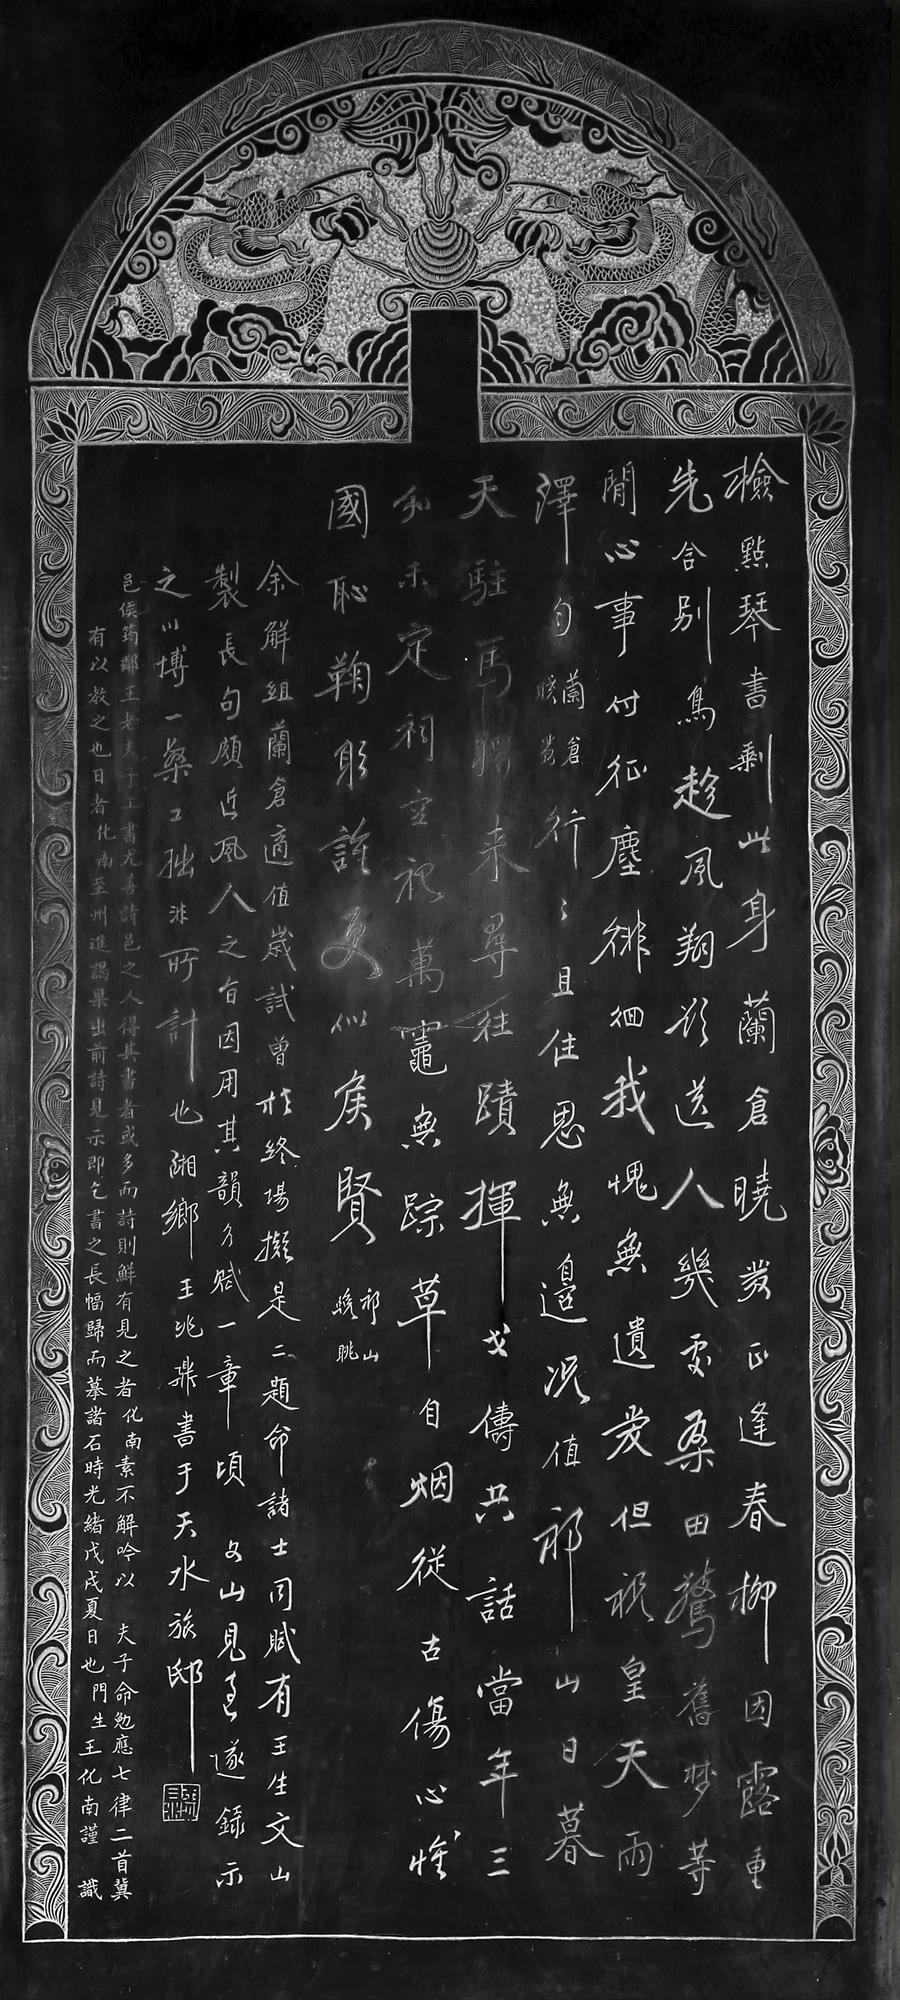 檢點琴書剩此身蘭倉曉發正逢春柳因露重
先含別鳥趁風翔欲送人幾處桑田驚舊梦等
閒心事付征塵徘徊我愧無遺愛但祝皇天雨
澤勻蘭倉曉發行〻且住思無邊況值祁山日暮
天駐馬獨来尋往蹟揮戈儔共話當年三
分未定祠空祝萬竈無踪草自烟從古傷心惟
國恥鞠躬誰更似侯賢祁山晚眺
余解組蘭倉適值歲試曾於終場擬是二題命諸士同賦有王生文山
製長句頗近風人之旨因用其韻另賦一章頃文山見過遂錄示
之以博一粲工拙非所計也湘鄉王兆鼎書于天水旅邸
邑侯筠鄰王老夫子工書尤善詩邑之人得其書者或多而詩則鮮有見之者化南素不解吟以夫子命勉應七律二首冀
有以教之也日者化南至州進謁果出前詩見示即乞書之長幅歸而摹諸石時光緒戊戌夏日也門生王化南謹識